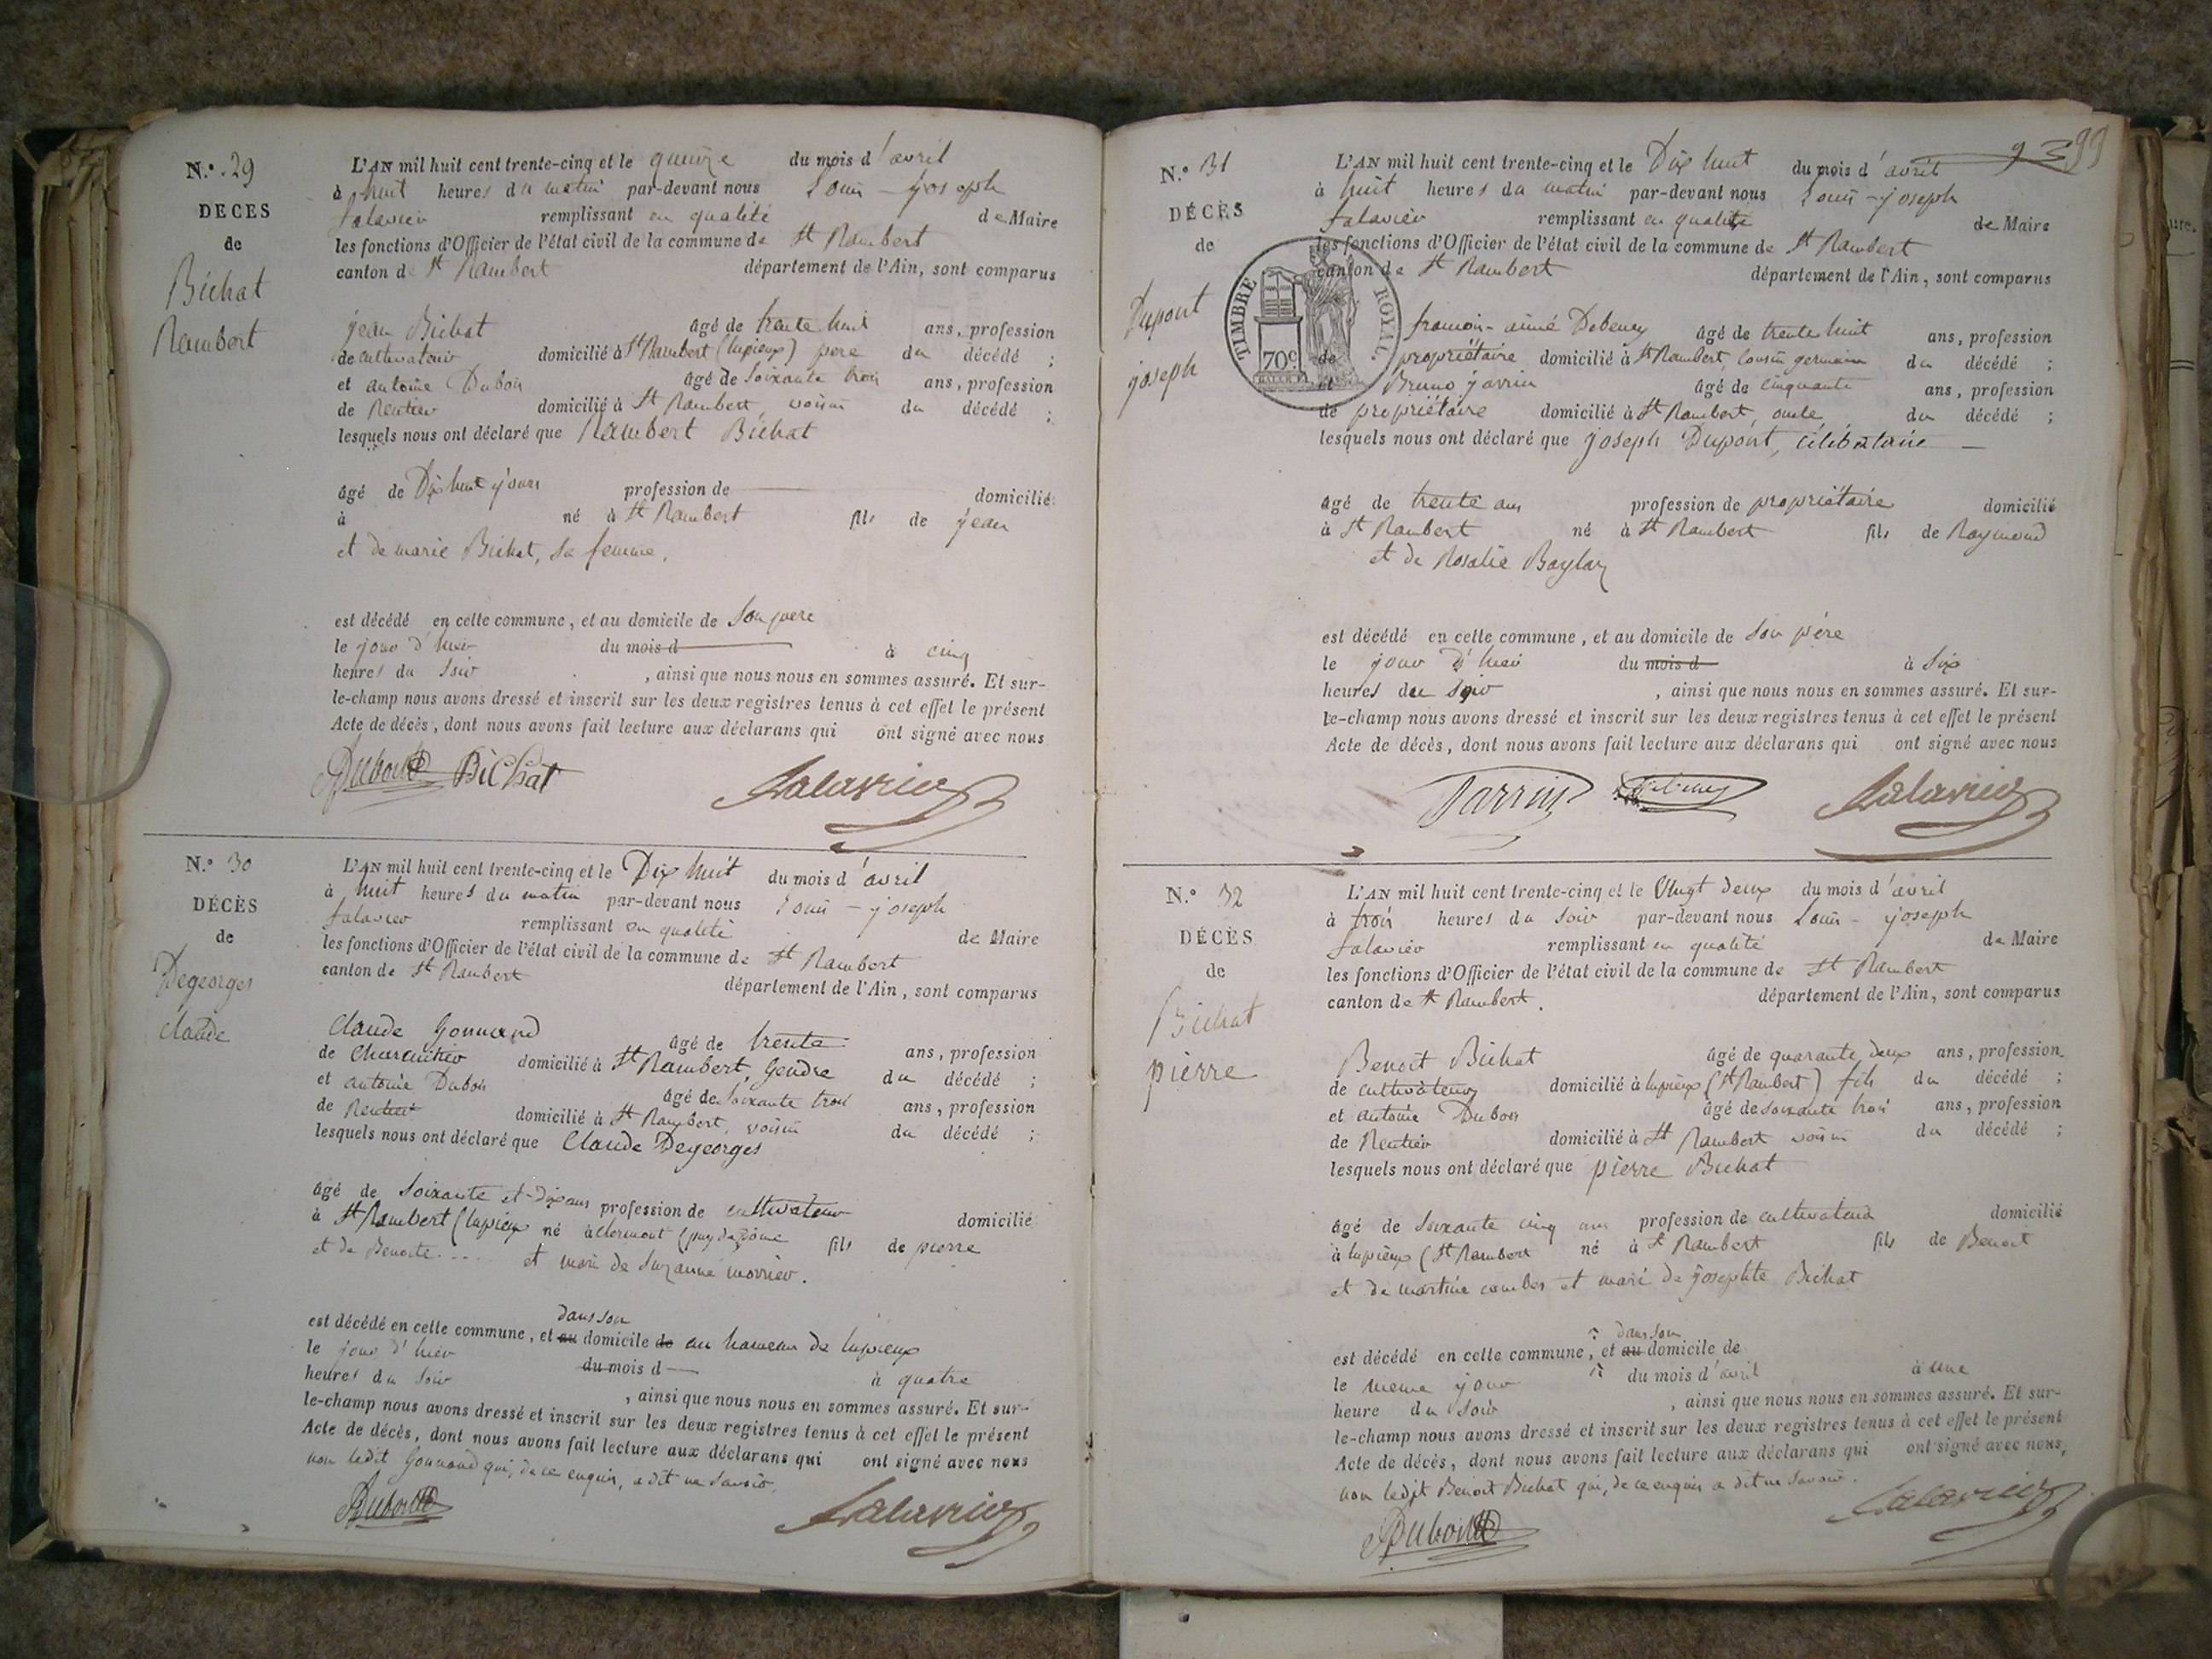 N.º 29
DECES
de
Bichat
Rambert
L'AN mil huit cent trente-cinq et le quinze du mois d'avril
à huit heures du matin par-devant nous Louis-joseph
Salavier remplissant en qualité de Maire
les fonctions d'Officier de l'état civil de la commune de St Rambert
canton de St Rambert département de l'Ain, sont comparus
jean Bichat âgé de trente huit ans, profession
de cultivateur domicilié à St Rambert (lupieux) pere du décédé ;
et antoine Dubois âgé de Soixante trois ans, profession
de Rentier domicilié à St Rambert, voisin du décédé ;
lesquels nous ont déclaré que Rambert Bichat
âgé de Dix huit jours profession de domicilié
à né à St Rambert fils de jean
et de marie Bichat, sa femme,
est décédé en cette commune, et au domicile de Son pere
le jour d'hier du mois d à cinq
heures du Soir , ainsi que nous nous en sommes assuré. Et sur-
le-champ nous avons dressé et inscrit sur les deux registres tenus à cet effet le présent
Acte de décès, dont nous avons fait lecture aux déclarans qui ont signé avec nous
Dubois Bichat Salavier
N.º 30
DÉCÈS
de
Degeorges
claude
L'AN mil huit cent trente-cinq et le Dix huit du mois d'avril
à huit heures du matin par-devant nous Louis-joseph
Salavier remplissant en qualité de Maire
les fonctions d'Officier de l'état civil de la commune de St Rambert
canton de St Rambert département de l'Ain, sont comparus
Claude Gonnand âgé de trente ans, profession
de domicilié à St Rambert, Gendre du décédé ;
et antoine Dubois âgé de Soixante trois ans, profession
de Rentier domicilié à St Rambert, voisin du décédé ;
lesquels nous ont déclaré que Claude Degeorges
âgé de Soixante et-dix ans profession de cultivateur domicilié
à St Rambert (lupieux né à clermont (puy de Dôme fils de pierre
et de Benoite.... et mari de Suzanne morrier.
dans son
est décédé en cette commune, et au domicile de au hameau de lupieux
le jour d'hier du mois d à quatre
heures du Soir , ainsi que nous nous en sommes assuré. Et sur-
le-champ nous avons dressé et inscrit sur les deux registres tenus à cet effet le présent
Acte de décès, dont nous avons fait lecture aux déclarans qui ont signé avec nous
non ledit Gonnand qui, de ce enquis, a dit ne savoir.
Dubois Salavier
93 99
N.º 31
DÉCÈS
de
Dupont
joseph
TIMBRE ROYAL
70c.
L'AN mil huit cent trente-cinq et le Dix huit du mois d'avril
à huit heures du matin par-devant nous Louis-joseph
Salavier remplissant en qualité de Maire
les fonctions d'Officier de l'état civil de la commune de St Rambert
canton de St Rambert département de l'Ain, sont comparus
françois-aimé Debeney âgé de trente huit ans, profession
de propriétaire domicilié à St Rambert, cousin germain du décédé ;
et Bruno jarrin âgé de cinquante ans, profession
de propriétaire domicilié à St Rambert, oncle du décédé ;
lesquels nous ont déclaré que joseph Dupont, célibataire
âgé de trente ans profession de propriétaire domicilié
à St Rambert né à St Rambert fils de Raymond
et de Rosalie
est décédé en cette commune, et au domicile de Son père
le jour d'hier du mois d à Six
heures du Soir , ainsi que nous nous en sommes assuré. Et sur-
le-champ nous avons dressé et inscrit sur les deux registres tenus à cet effet le présent
Acte de décès, dont nous avons fait lecture aux déclarans qui ont signé avec nous
Jarrin Debeney Salavier
N.º 32
DÉCÈS
de
Bichat
pierre
L'AN mil huit cent trente-cinq et le Vingt deux du mois d'avril
à trois heures du Soir par-devant nous Louis-joseph
Salavier remplissant en qualité de Maire
les fonctions d'Officier de l'état civil de la commune de St Rambert
canton de St Rambert. département de l'Ain, sont comparus
Benoit Bichat âgé de quarante deux ans, profession
de cultivateur domicilié à lupieux (St Rambert) fils du décédé ;
et antoine Dubois âgé de soixante trois ans, profession
de Rentier domicilié à St Rambert voisin du décédé ;
lesquels nous ont déclaré que pierre Bichat
âgé de Soixante cinq ans profession de cultivateur domicilié
à lupieux (St Rambert né à St Rambert fils de Benoit
et de martine et mari de josephte Bichat
dans son
est décédé en cette commune, et au domicile de
le meme jour du mois d'avril à une
heure du Soir , ainsi que nous nous en sommes assuré. Et sur-
le-champ nous avons dressé et inscrit sur les deux registres tenus à cet effet le présent
Acte de décès, dont nous avons fait lecture aux déclarans qui ont signé avec nous,
non ledit Benoit Bichat qui, de ce enquis a dit ne savoir.
Dubois Salavier